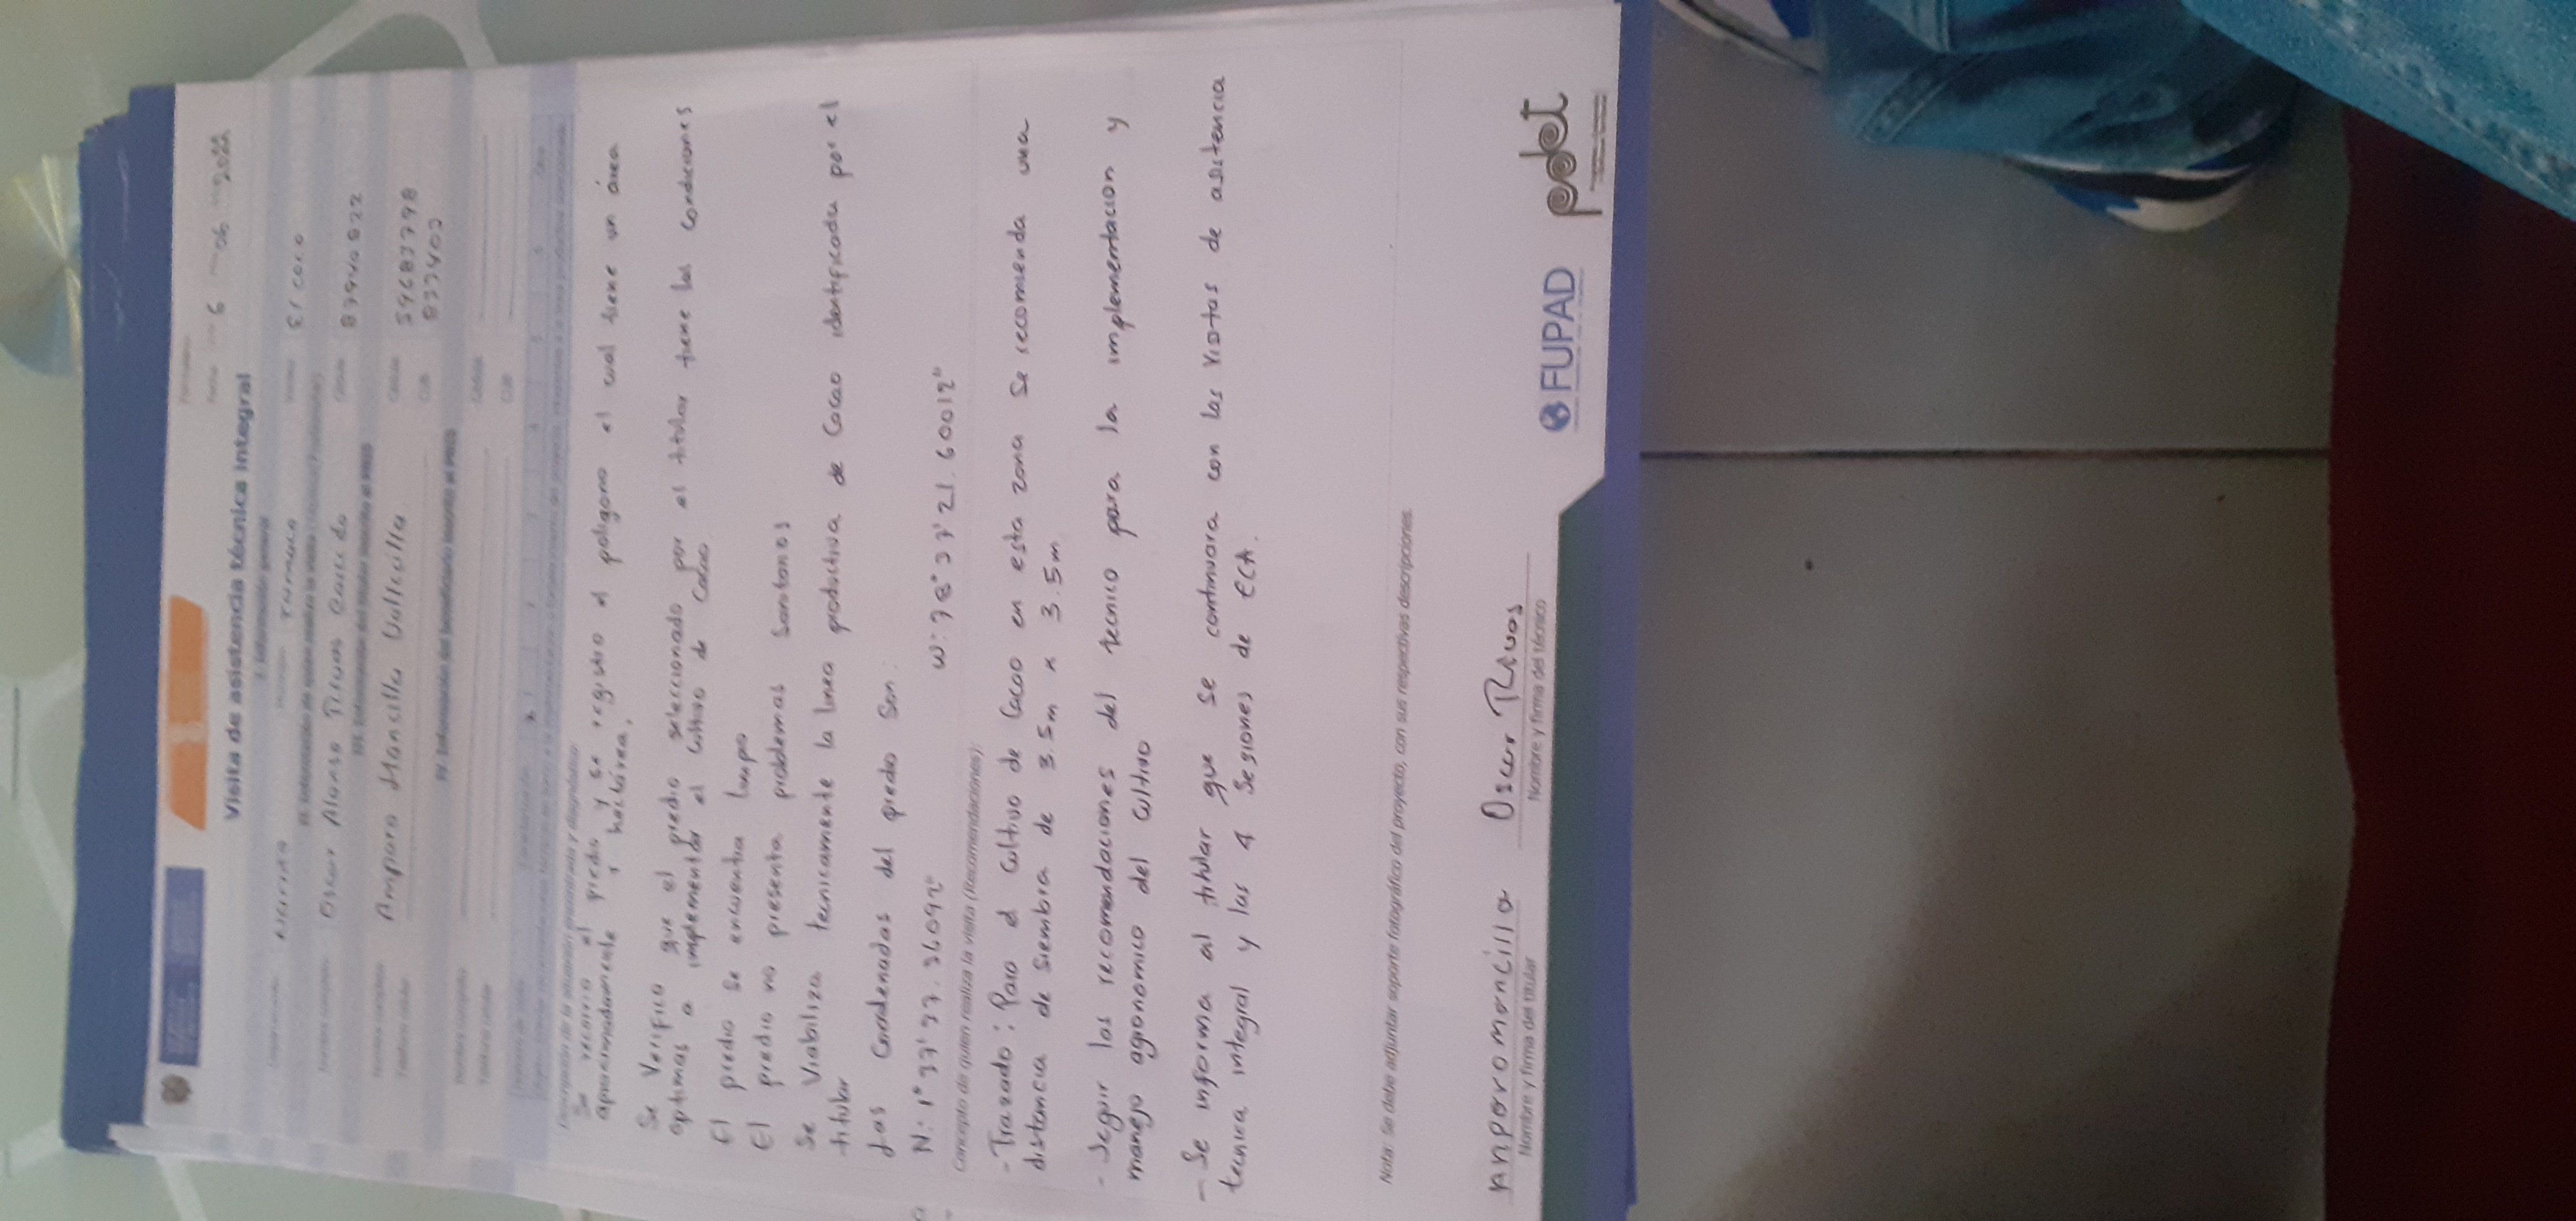 Visita de asistencia técnica integral
6 06 2022
I. Información general
Nariño Tumaco El coco
Oscar Alonso Tiruas 87940822
III. Información del titular inscrito al PNIS
Amparo Mancilla Vallecilla 59683798
8377403
IV. Información del beneficiario inscrito al PNIS
Se recorrio el predio y se registro el poligono el cual tiene un área
aproximadamente 1 hectárea,
Se Verifico que el predio seleccionado por el titular tiene las condiciones
optimas a implementar el cultivo de Cacao
El predio se encuentra limpio
El predio no presenta problemas sanitarios
Se Viabiliza tecnicamente la linea productiva de Cacao identificada por el
titular
Las Cordenadas del predio Son:
N: 1°37'37.36092" W: 78°37'21.60012"
Concepto de quien realiza la visita (Recomendaciones):
- Trazado: Para el Cultivo de Cacao en esta zona Se recomienda una
distancia de siembra de 3.5m x 3.5m
- Seguir las recomendaciones del tecnico para la implementacion y
manejo agronomico del cultivo
- Se informa al titular que se continuara con las visitas de asistencia
tecnica integral y las 4 Sesiones de ECA.
Nota: Se debe adjuntar soporte fotográfico del proyecto, con sus respectivas descripciones.
anperomancilla
Nombre y firma del titular
Oscar Tiruas
Nombre y firma del técnico
FUPAD
pdet